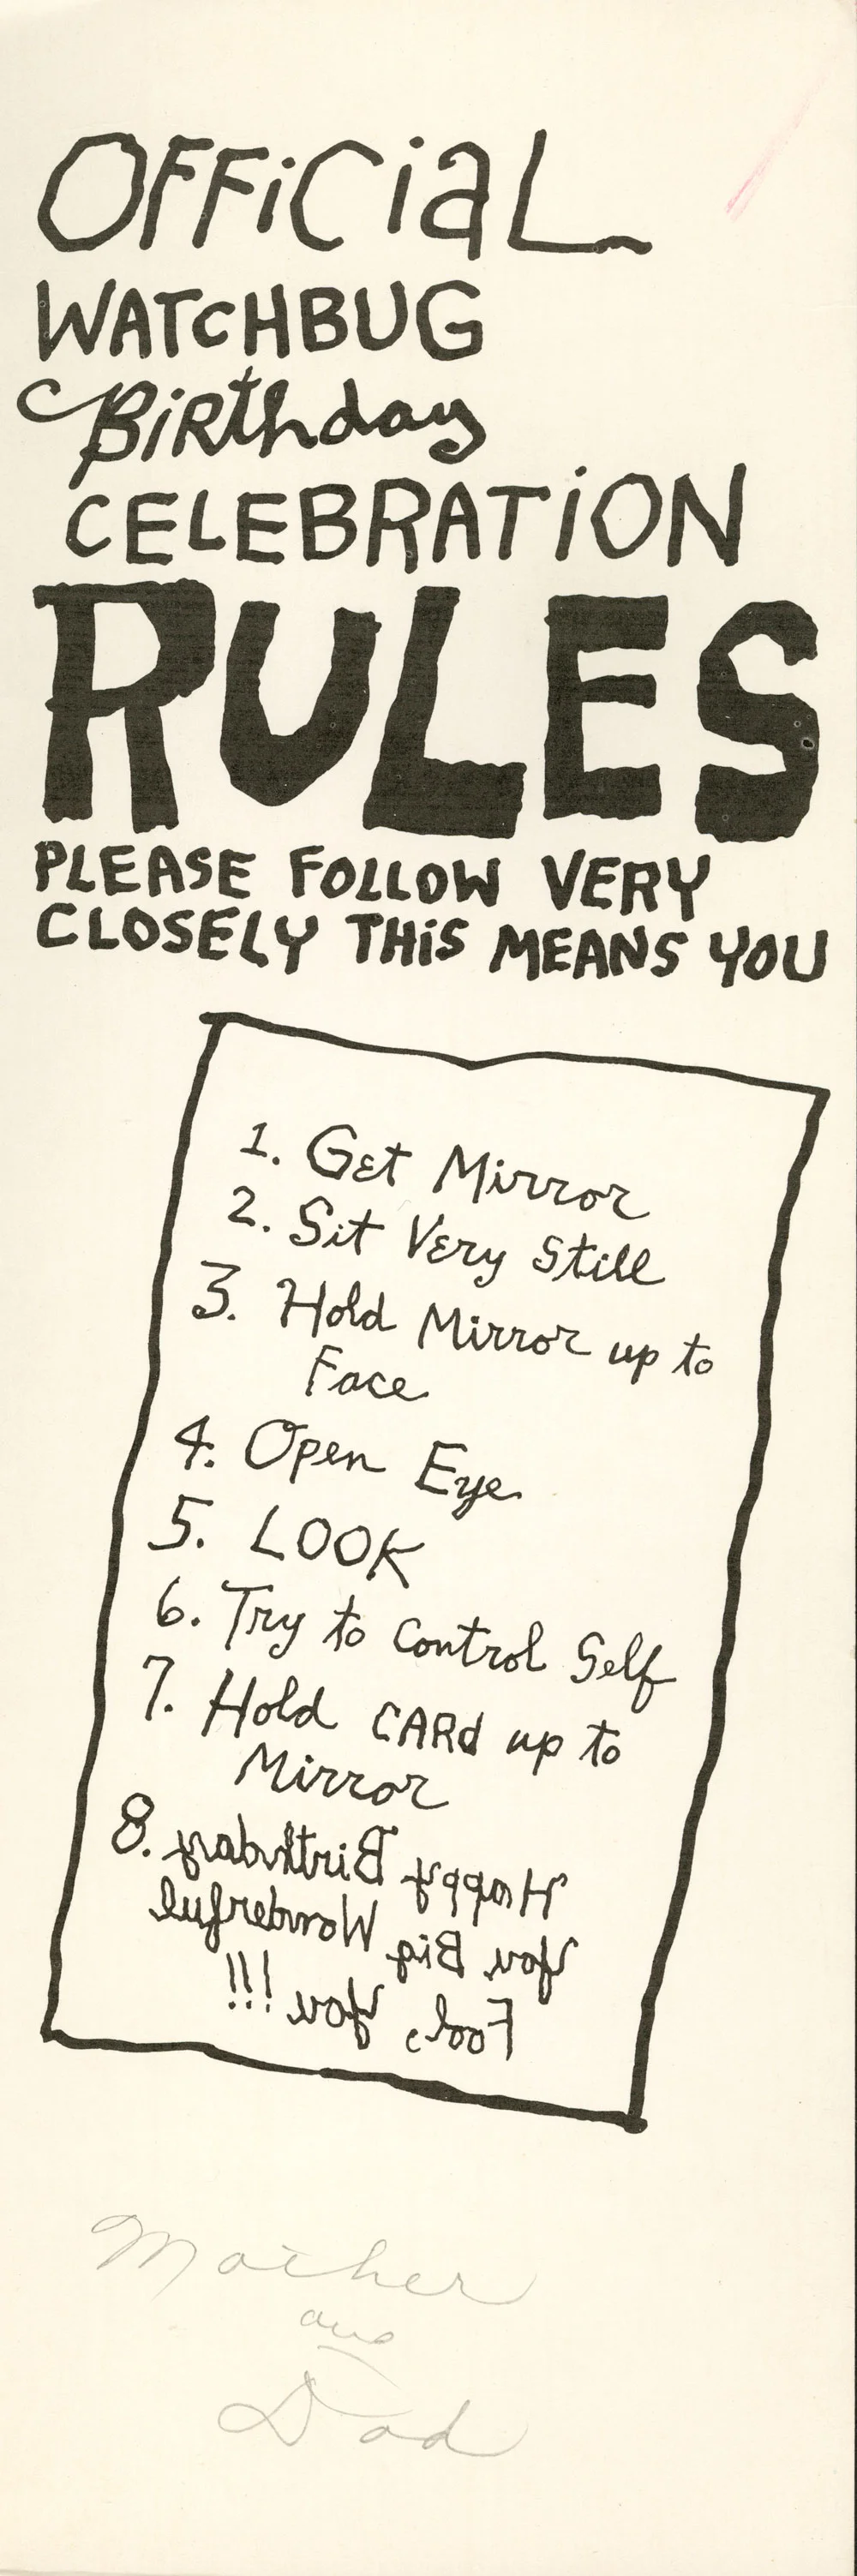 OFFiCiaL
WATCHBUG
BiRthday
CELEBRATiON
RULES
PLEASE FOLLOW VERY
CLOSELY THiS MEANS YOU
1. Get Mirror
2. Sit Very Still
3. Hold Mirror up to
Face
4. Open Eye
5. LOOK
6. Try to Control Self
7. Hold CARd up to
Mirror
8. Happy Birthday
You Big Wonderful
Fool, You!!!
Mother
and
Dad